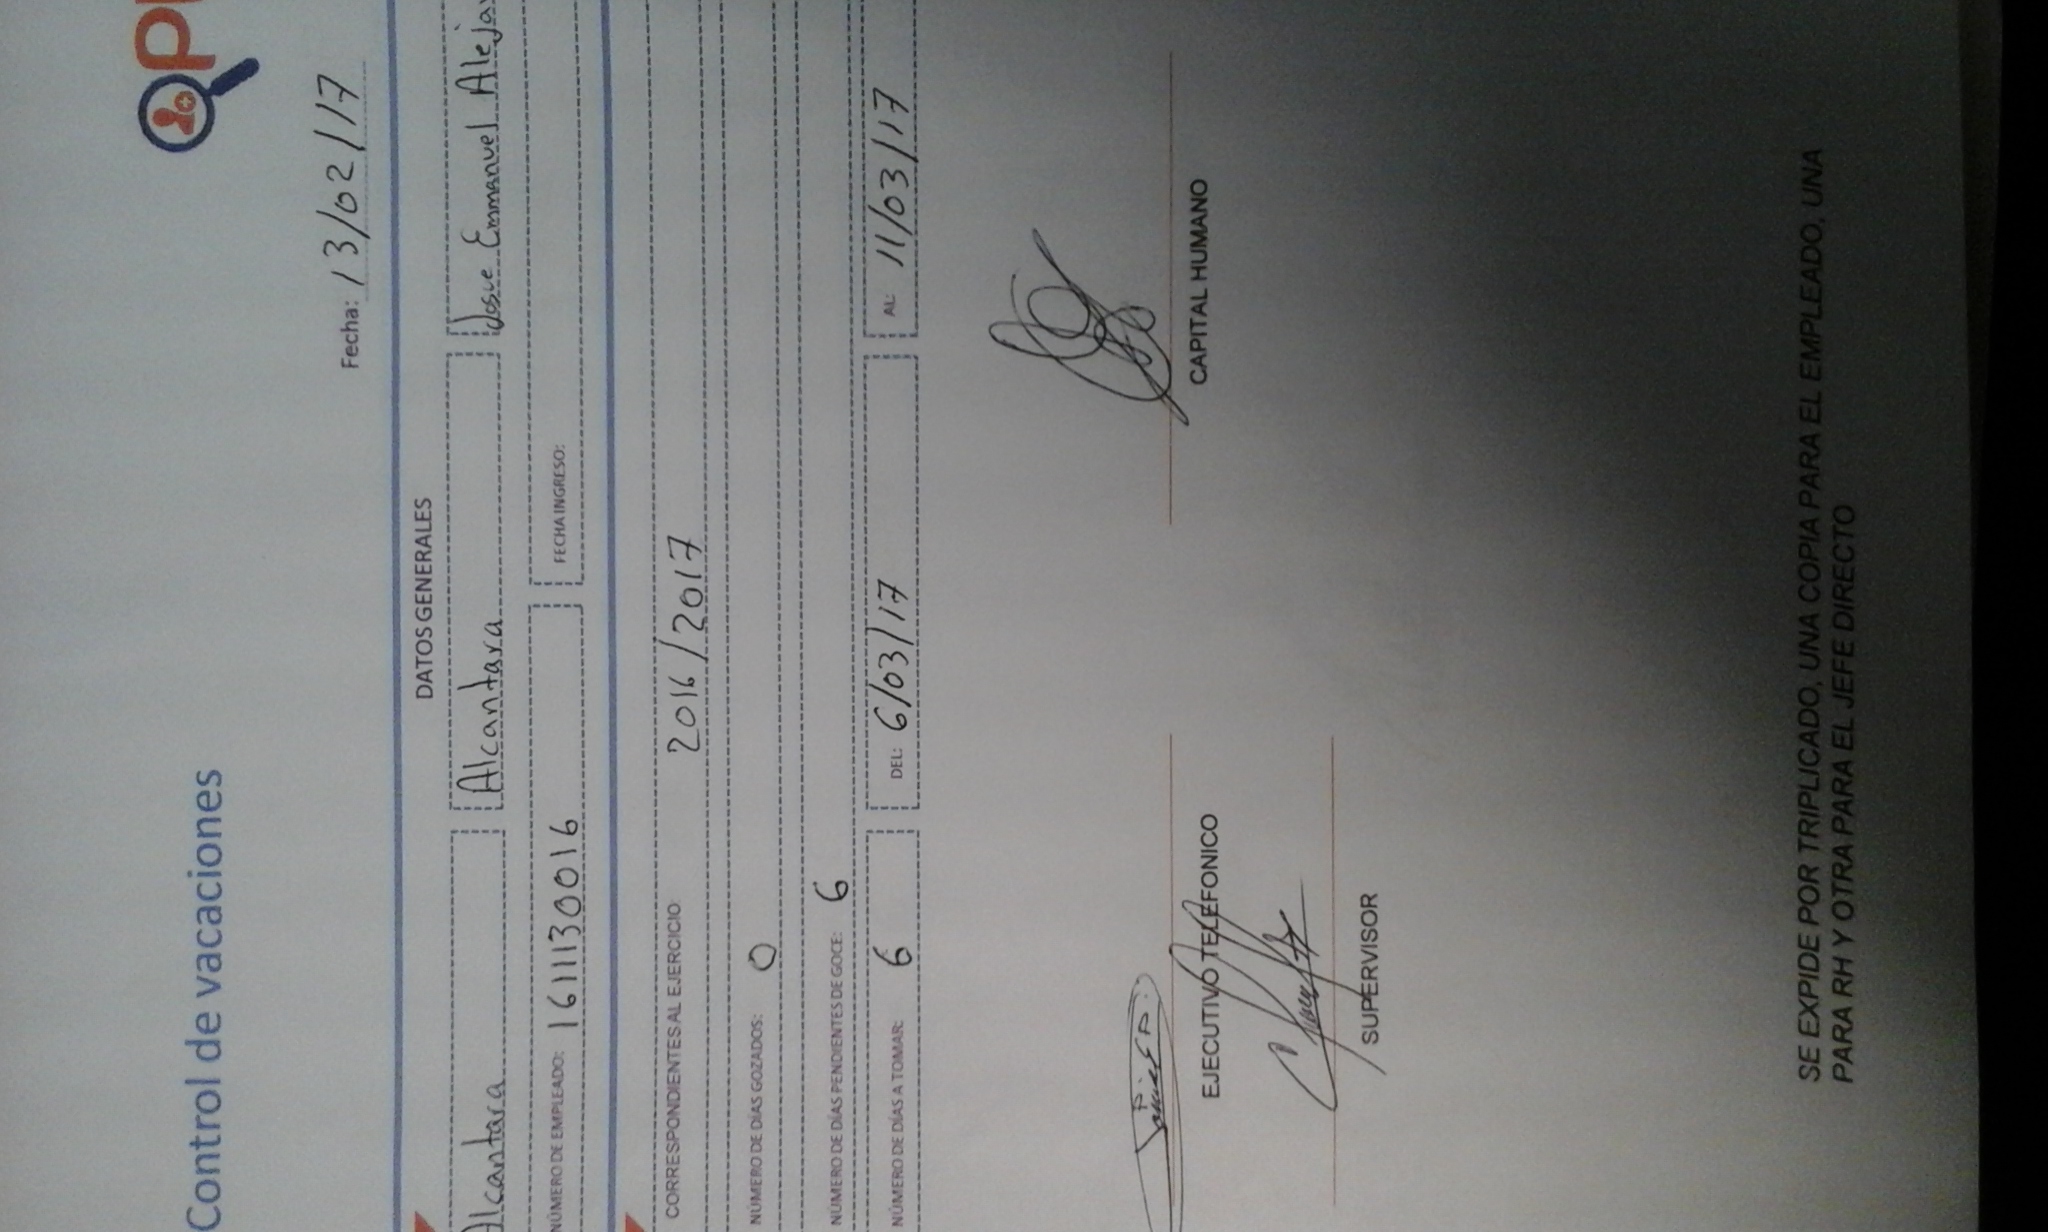 Control de vacaciones
Fecha: 13/02/17
DATOS GENERALES
Alcantara Alcantara Josue Emmanuel Aleja
NÚMERO DE EMPLEADO: 1611130016 FECHA INGRESO:
CORRESPONDIENTES AL EJERCICIO: 2016/2017
NÚMERO DE DÍAS GOZADOS: 0
NÚMERO DE DÍAS PENDIENTES DE GOCE: 6
NÚMERO DE DÍAS A TOMAR: 6 DEL: 6/03/17 AL: 11/03/17
EJECUTIVO TELEFONICO CAPITAL HUMANO
SUPERVISOR
SE EXPIDE POR TRIPLICADO, UNA COPIA PARA EL EMPLEADO, UNA
PARA RH Y OTRA PARA EL JEFE DIRECTO